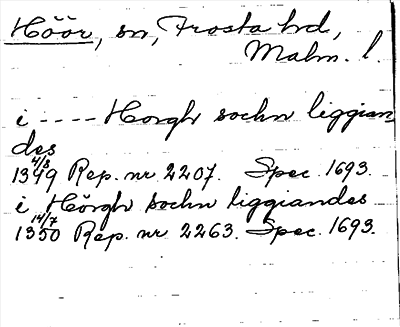 Höör, sn, Frosta hd,
Malm. l.
i ---- Horgh sochn liggian
des
4/8
1349 Rep. nr 2207. Spec. 1693.
i Hörgh sochn liggiandes
14/7
1350 Rep. nr 2263. Spec. 1693.